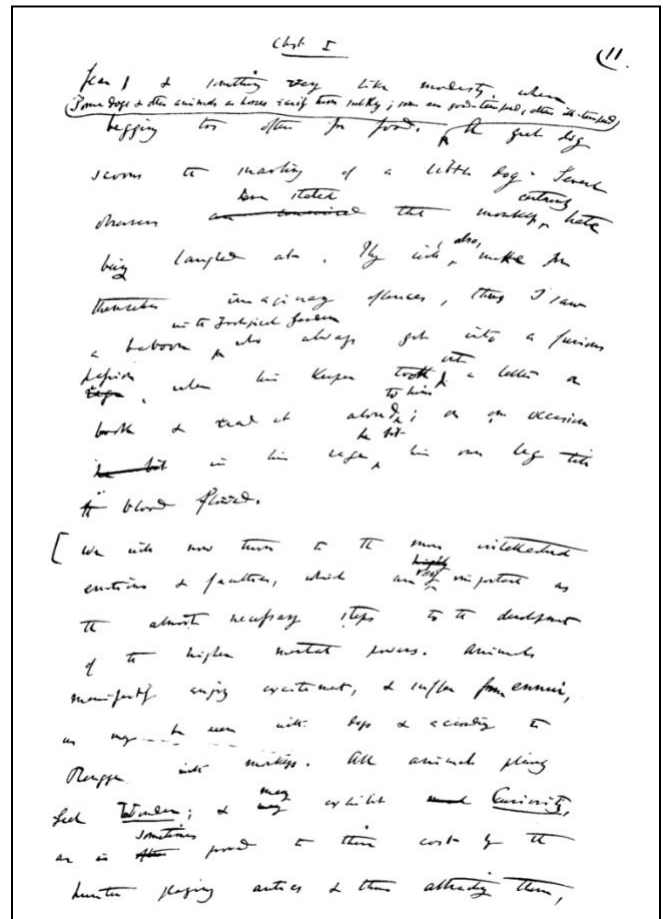 Chap I
11.
fear & something very like modesty, when
Some dogs & other animals as horses easily turn sulky; some are good-tempered, others ill-tempered
begging too often for food. A great dog
scorns the snarling of a little dog. Several
have stated certainly
observers are convinced that monkeys hate
being laughed at. They will, also, make for
themselves imaginary offences, thus I saw
in the Zoological Gardens
a baboon, who always got into a furious
out
passion
rage, when his keeper took a letter or
to him
book & read it aloud; & on one occasion
he bit
he bit in his rage his own leg till
the blood flowed.
[We will now turn to the more intellectual
very
emotions & faculties, which are highly important as
the almost necessary steps to the development
of the higher mental powers. Animals
manifestly enjoy excitement, & suffer from ennui,
as may be seen with dogs & according to
Rengger with monkeys. All animals plainly
may
feel Wonder; & may exhibit Curiosity,
sometimes
as is often proved to their cost by the
hunter playing antics & thus attracting them,